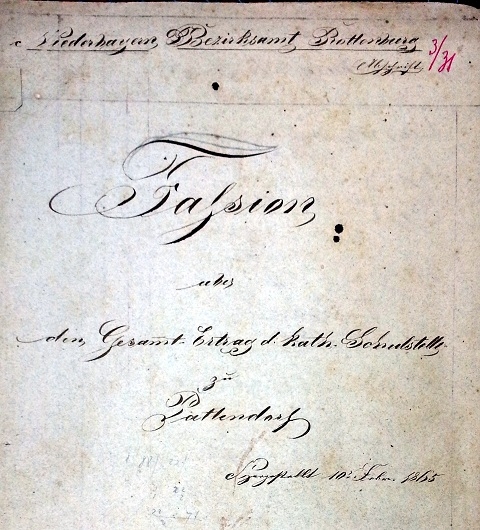 Niederbayern Bezirksamt Rottenburg
Abschrift
3/31
Faßion
über
den Gesam̅t-Ertrag d. kath. Schulstelle
zu
Pattendorf
Hergestellt 10. Febr. 1865